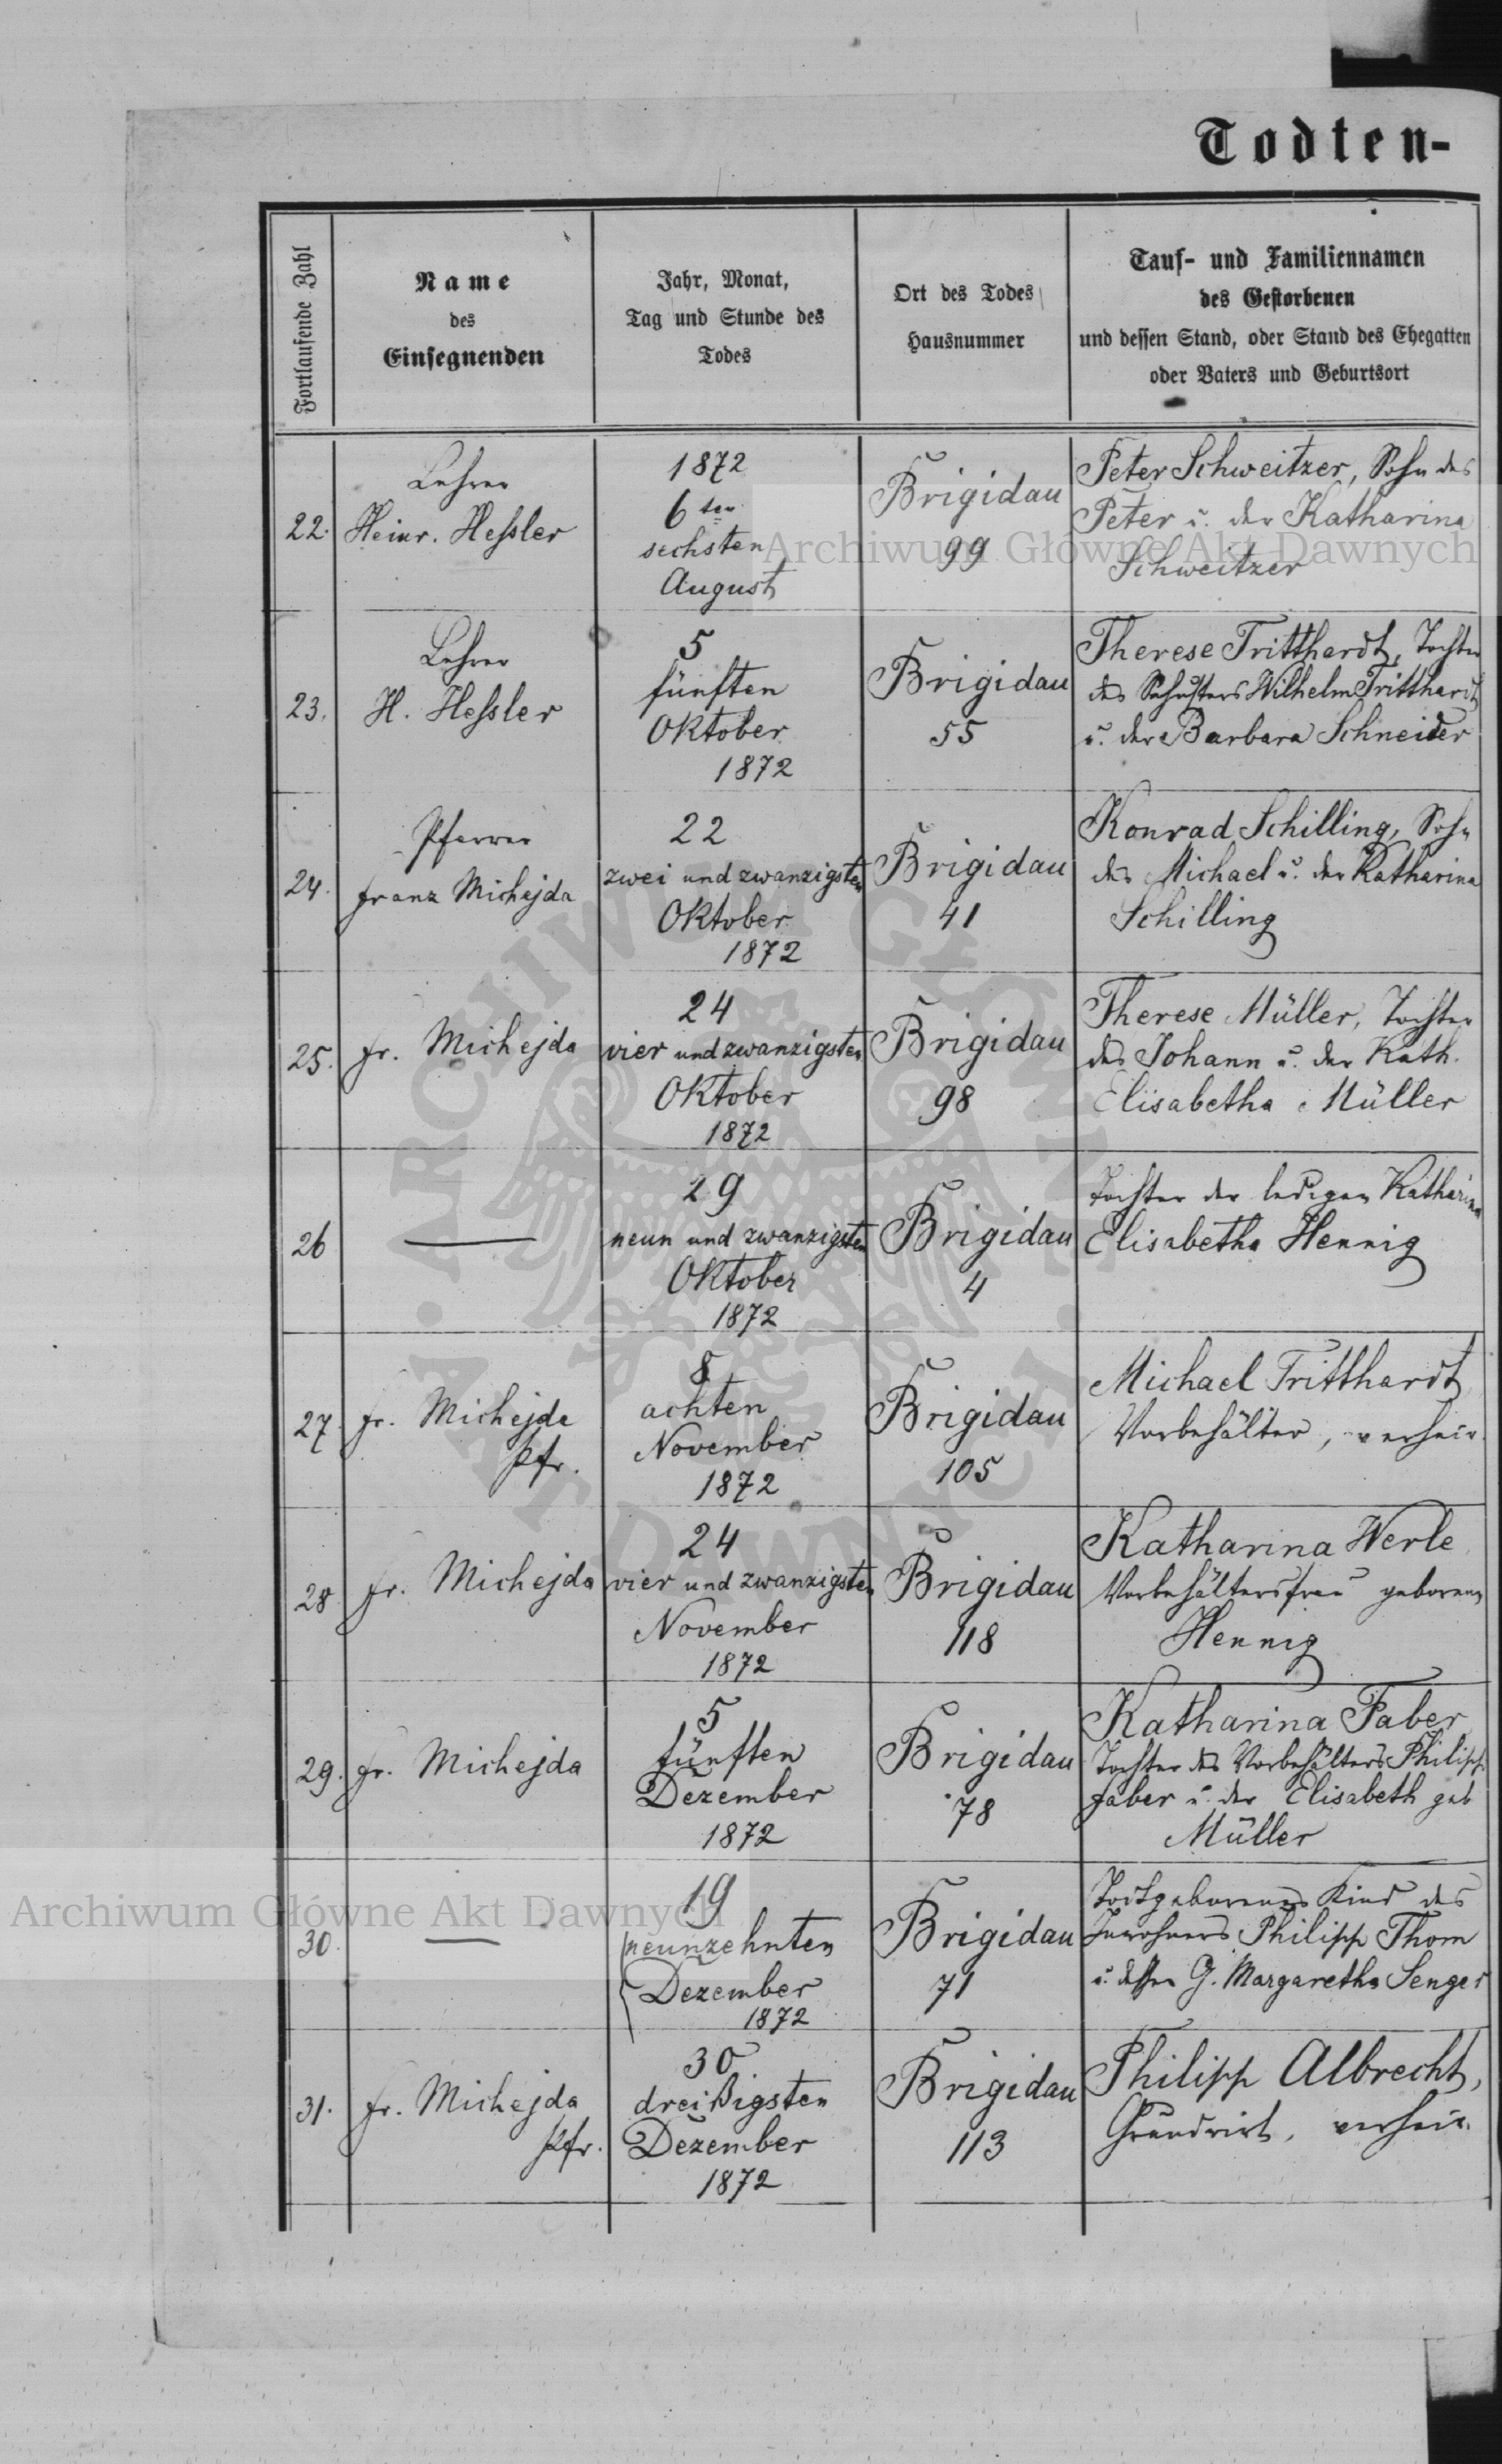 Todten-
Fortlaufende Zahl
Name
des
Einsegnenden
Jahr, Monat,
Tag und Stunde des
Todes
Ort des Todes
Hausnummer
Tauf- und Familiennamen
des Gestorbenen
und dessen Stand, oder Stand des Ehegatten
oder Vaters und Geburtsort
22.
Lehrer
Heinr. Heßler
1872
6ten
sechsten
August
Brigidau
99
Peter Schweitzer, Sohn des
Peter u. der Katharina
Schweitzer
Archiwum Główne Akt Dawnych
23.
Lehrer
H. Heßler
5
fünften
Oktober
1872
Brigidau
55
Therese Tritthardt, Tochter
des Schusters Wilhelm Tritthardt
u. der Barbara Schneider
24.
Pfarrer
Franz Michejda
22
zwei und zwanzigsten
Oktober
1872
Brigidau
41
Konrad Schilling, Sohn
des Michael u. der Katharina
Schilling
25.
Fr. Michejda
24
vier und zwanzigsten
Oktober
1872
Brigidau
98
Therese Müller, Tochter
des Johann u. der Kath.
Elisabetha Müller
26
29
neun und zwanzigsten
Oktober
1872
Brigidau
4
Tochter der ledigen Katharina
Elisabetha Hennig
27.
Fr. Michejda
Pfr.
8
achten
November
1872
Brigidau
105
Michael Tritthardt
Vorbehälter, verheir.
28.
Fr. Michejda
24
vier und zwanzigsten
November
1872
Brigidau
118
Katharina Werle
Vorbehältersfrau geborene
Hennig
29.
Fr. Michejda
5
fünften
Dezember
1872
Brigidau
78
Katharina Faber
Tochter des Vorbehälters Philipp
Faber u. der Elisabeth geb
Müller
30.
19
neunzehnten
Dezember
1872
Brigidau
71
Todtgeborenes Kind des
Inwohners Philipp Thom
u. dessen G. Margaretha Senger
Archiwum Główne Akt Dawnych
31.
Fr. Michejda
Pfr.
30
dreißigsten
Dezember
1872
Brigidau
113
Philipp Albrecht,
Grundwirt, verheir.
ARCHIWUM GŁÓWNE
AKT DAWNYCH